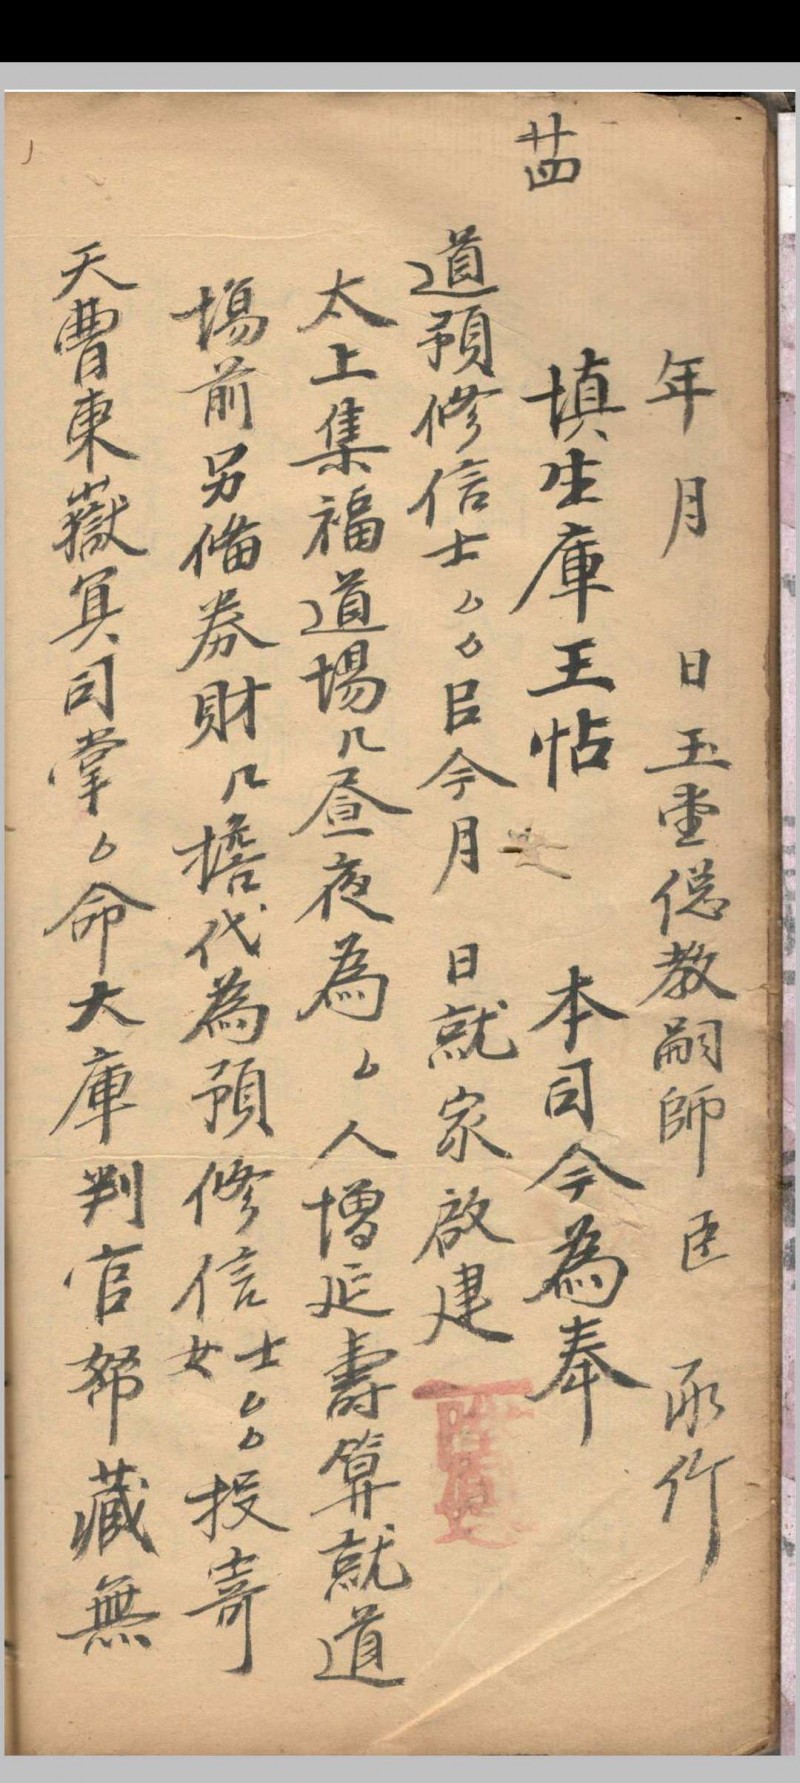 年 月 日玉堂總教嗣師 臣 承行
廿四
填生庫王帖 本司今為奉
道預修信士厶厶臣今月 日就家啟建
太上集福道場几昼夜為厶人增延壽算就道
場前另備券財几擔代為預修信士女厶厶投寄
天曹東嶽冥司掌厶命大庫判官帑藏無